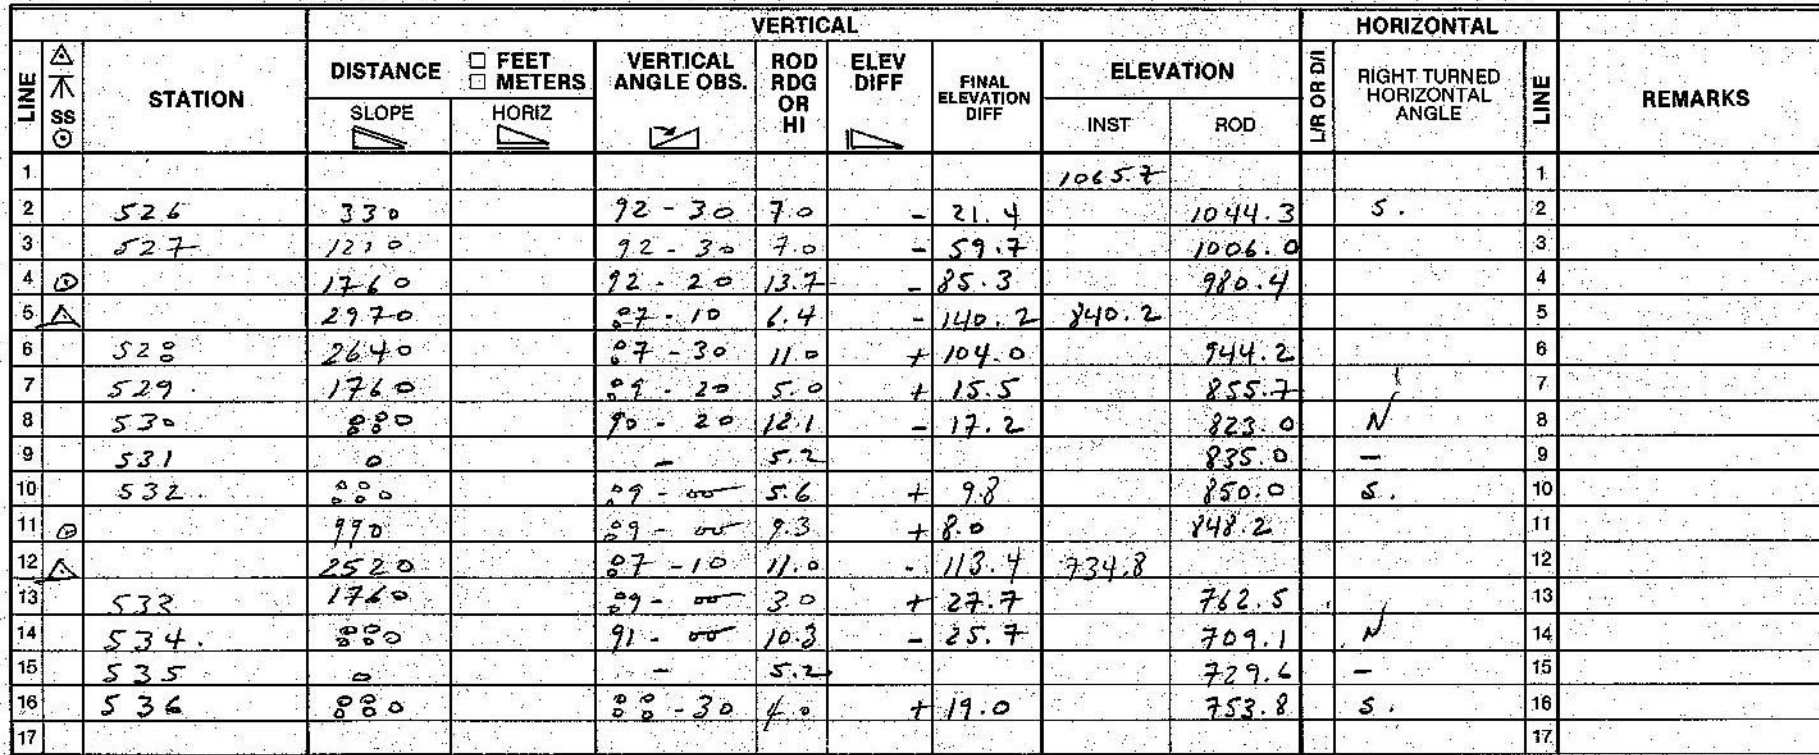 VERTICAL HORIZONTAL
LINE SS STATION DISTANCE □ FEET □ METERS VERTICAL ANGLE OBS. ROD RDG OR HI ELEV DIFF FINAL ELEVATION DIFF ELEVATION L/R OR D/I RIGHT TURNED HORIZONTAL ANGLE LINE REMARKS
SLOPE HORIZ INST ROD
1 1065.7 1
2 526 330 92 - 30 7.0 - 21.4 1044.3 S. 2
3 527 1210 92 - 30 7.0 - 59.7 1006.0 3
4 ⊙ 1760 92 - 20 13.7 - 85.3 980.4 4
5 △ 2970 87 - 10 6.4 - 140.2 840.2 5
6 528 2640 87 - 30 11.0 + 104.0 944.2 6
7 529. 1760 89 - 20 5.0 + 15.5 855.7 7
8 530 880 90 - 20 12.1 - 17.2 823.0 N 8
9 531 0 - 5.2 835.0 - 9
10 532. 880 89 - 00 5.6 + 9.8 850.0 S. 10
11 ⊙ 990 89 - 00 9.3 + 8.0 848.2 11
12 △ 2520 87 - 10 11.0 - 113.4 734.8 12
13 533 1760 89 - 00 3.0 + 27.7 762.5 13
14 534. 880 91 - 00 10.3 - 25.7 709.1 N 14
15 535 0 - 5.2 729.6 - 15
16 536 880 88 - 30 4.0 + 19.0 753.8 S. 16
17 17